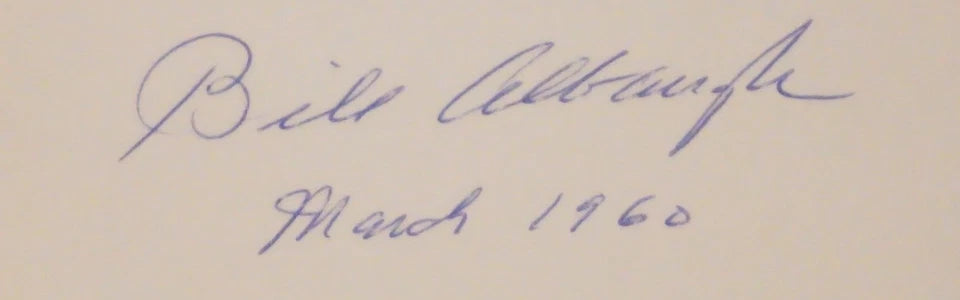 Bill Albaugh
March 1960